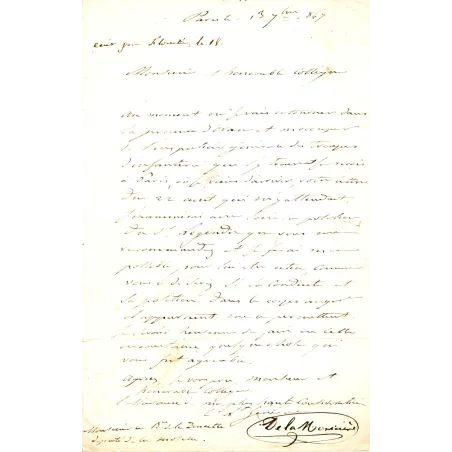 Paris le 13 7bre 1847
écrit par le 18.
Monsieur et honorable collègue
Au moment où je vais retourner dans
la province d'Oran et m'occuper
de l'inspection générale des troupes
d'infanterie qui s'y trouvent je reçois
à Paris, où je viens d'arriver, votre lettre
du 22 août qui m'y attendait
J'examinerai avec soin la position
du Sr Legendre que vous me
recommandez et je ferai mon
possible pour lui être utile, comme
vous le désirez si sa conduite et
sa position dans le corps auquel
il appartient me le permettent.
Je serais heureux de faire en cette
circonstance quelque chose qui
vous fût agréable.
Agréez je vous prie Monsieur et
honorable collègue
l'assurance de ma plus haute considération
Lt Génl
De la Moricière
Monsieur le Bn de la
député de la